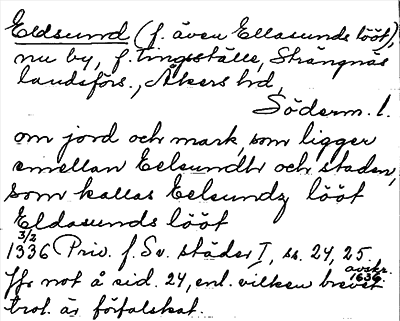 Eldsund (f. även Ellasunds lööt),
nu by, f. tingsställe, Strängnäs
landsförs., Åkers hd,
Söderm. l.
om jord och mark, som ligger
emellan Eelsundh och staden,
som kallas Eelsundz lööt
Eldasunds lööt
3/2
1336 Priv. f. Sv. städer I, ss. 24, 25.
avskr. 1636.
Jfr not å sid. 24, enl. vilken brevet
trol. är förfalskat.